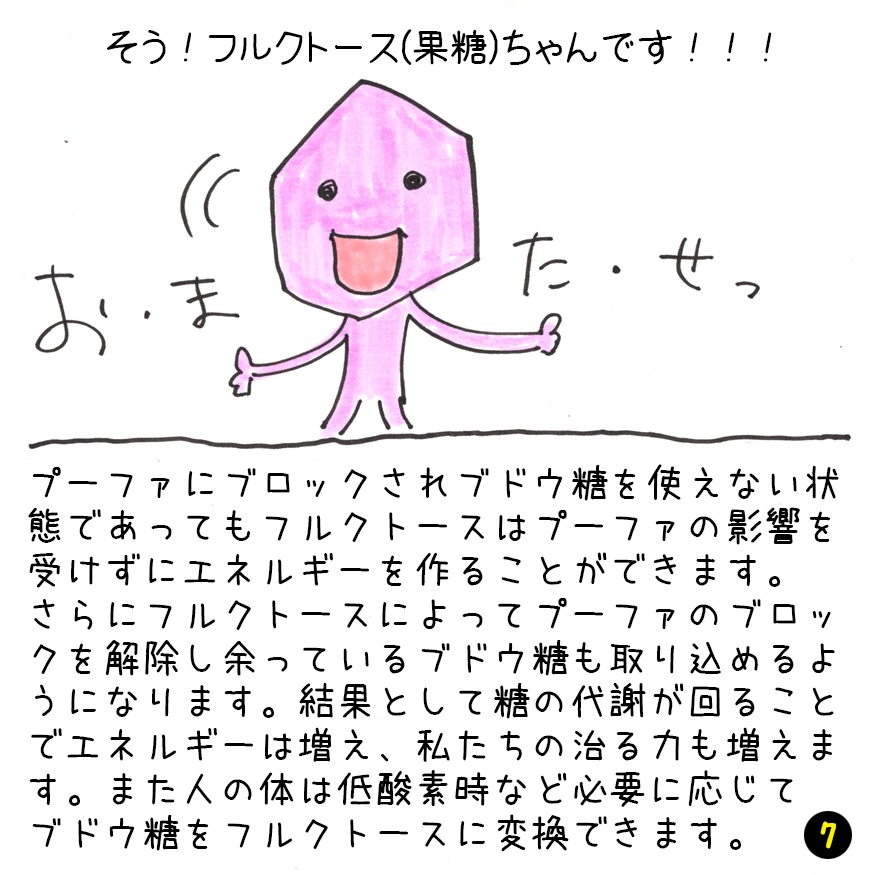 そう！フルクトース(果糖)ちゃんです！！！
お・ま
た・せっ
プーファにブロックされブドウ糖を使えない状
態であってもフルクトースはプーファの影響を
受けずにエネルギーを作ることができます。
さらにフルクトースによってプーファのブロッ
クを解除し余っているブドウ糖も取り込めるよ
うになります。結果として糖の代謝が回ること
でエネルギーは増え、私たちの治る力も増えま
す。また人の体は低酸素時など必要に応じて
ブドウ糖をフルクトースに変換できます。
7